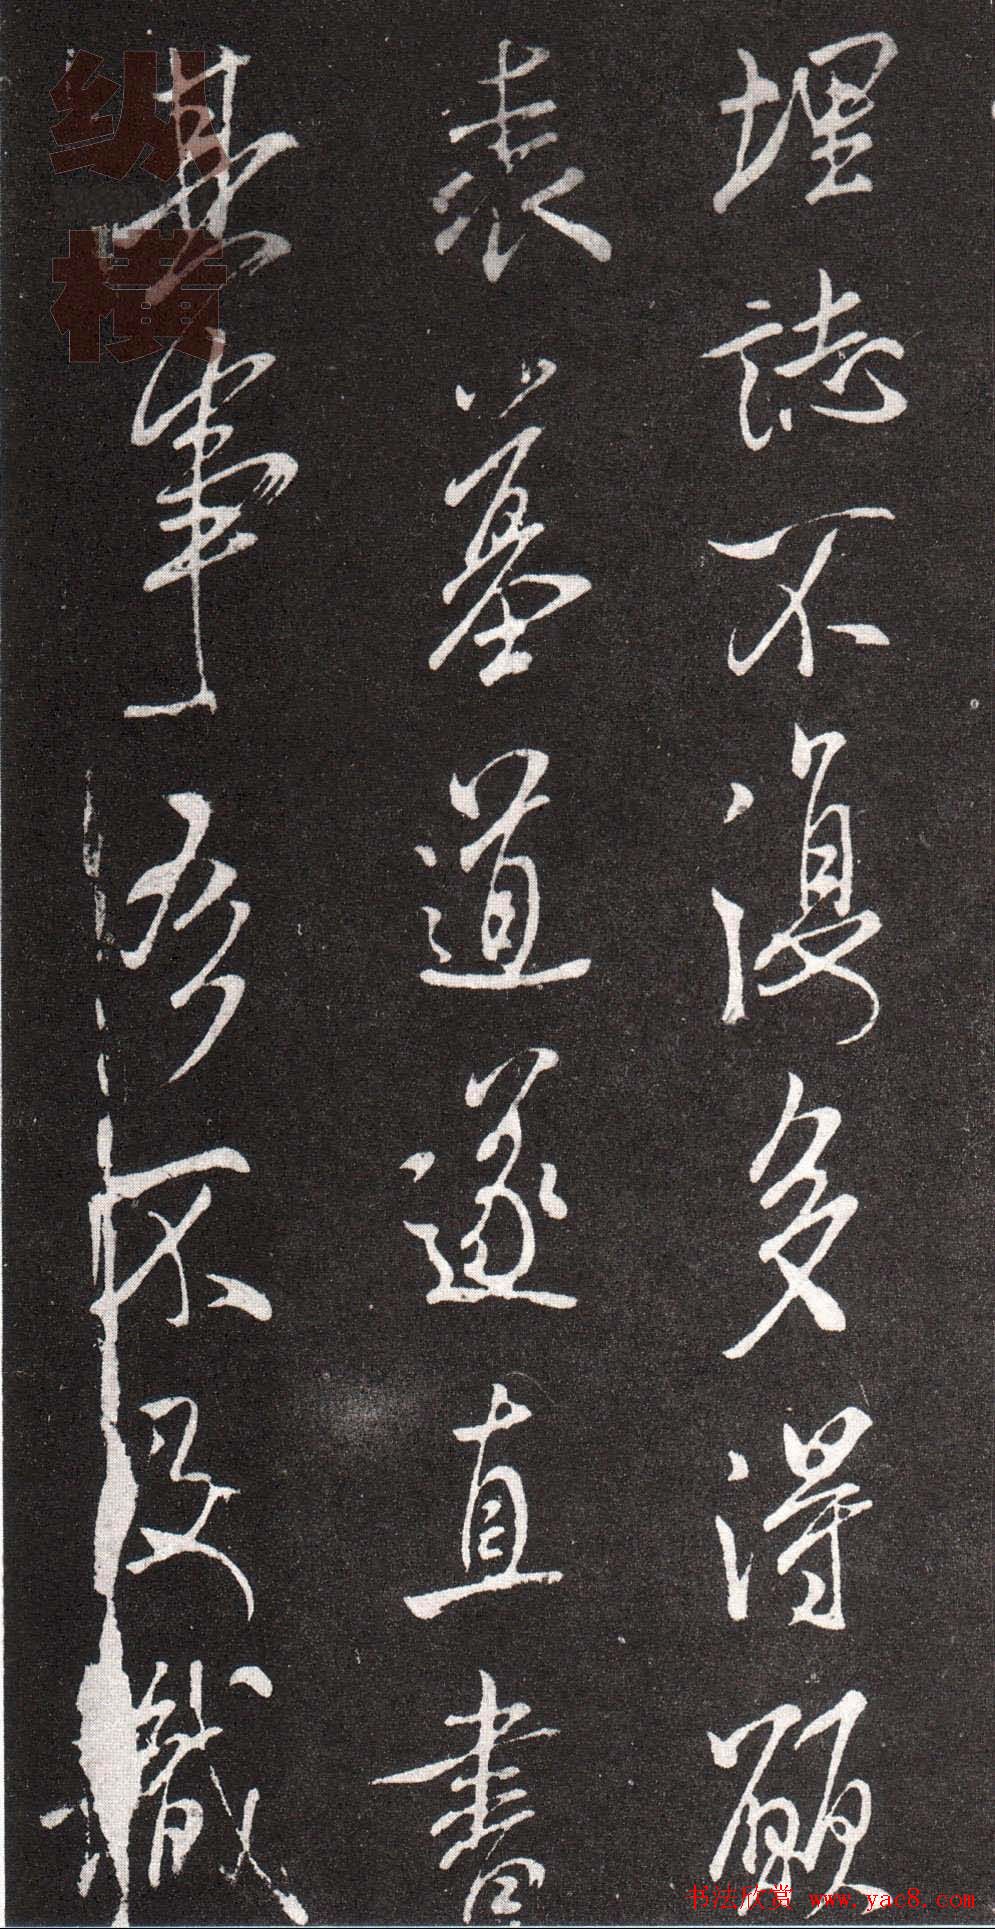 埋誌不復多得願
表墓道遂直書
其事吾不及識
纵横
书法欣赏 www.yac8.com